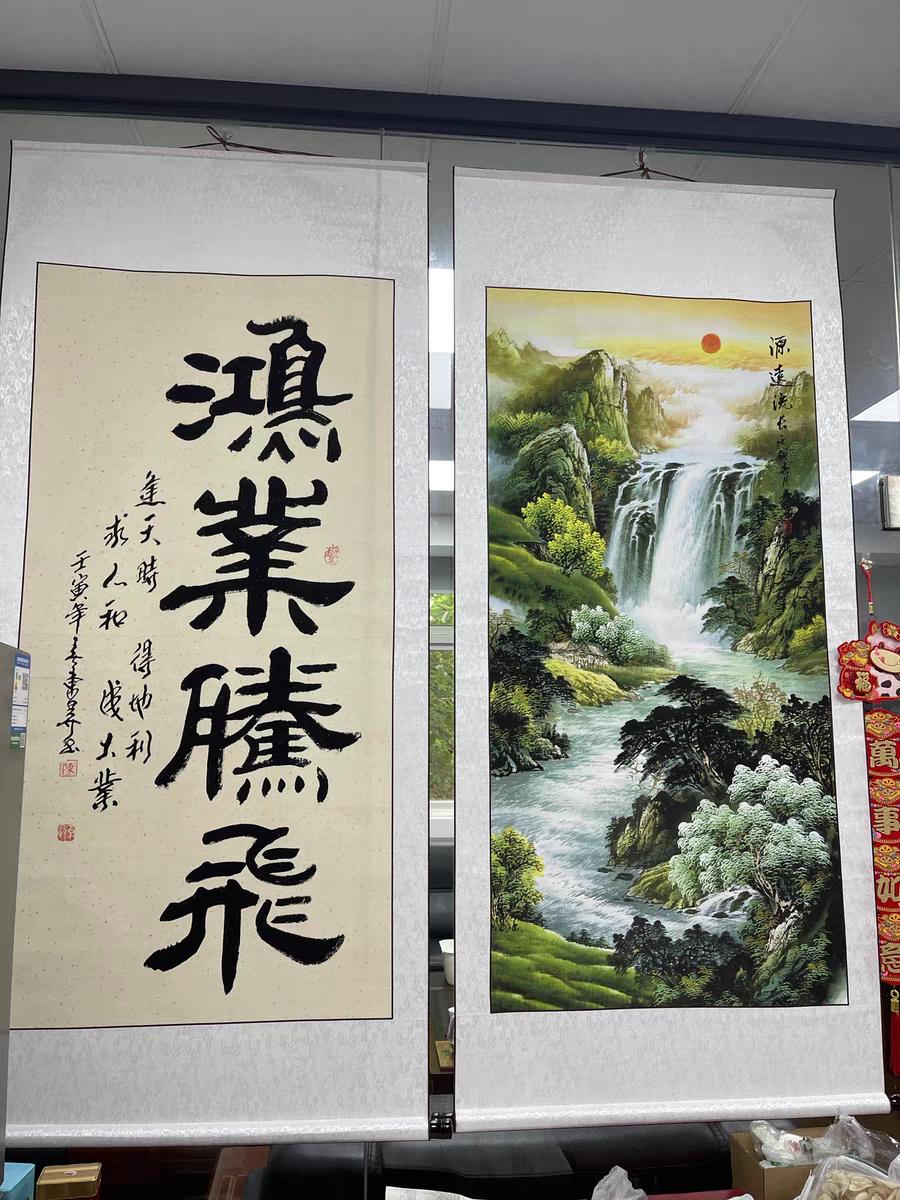 鴻業騰飛
天時 得地利
求人和 成大業
壬寅年
源遠流长
福
萬事如意